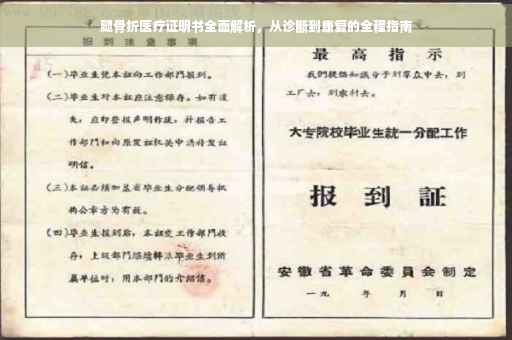 腿骨折医疗证明书全面解析，从诊断到康复的全程指南
报到注意事项
(一)毕业生凭本证向工作部门报到。
(二)毕业生对本证应注意保存。如有遗
失，应即登报声明作废，并报告工
作部门和向原发证机关申请补发证
明信。
(三)本证必须加盖省毕业生分配领导机
构公章方为有效。
(四)毕业生报到后，本证交工作部门收
存；上级部门继续转派毕业生到所
属单位时，用本部门的介绍信。
最高指示
我们提倡知识分子到群众中去，到
工厂去，到农村去。
大专院校毕业生統一分配工作
报到証
安徽省革命委員会制定
一九 年 月 日